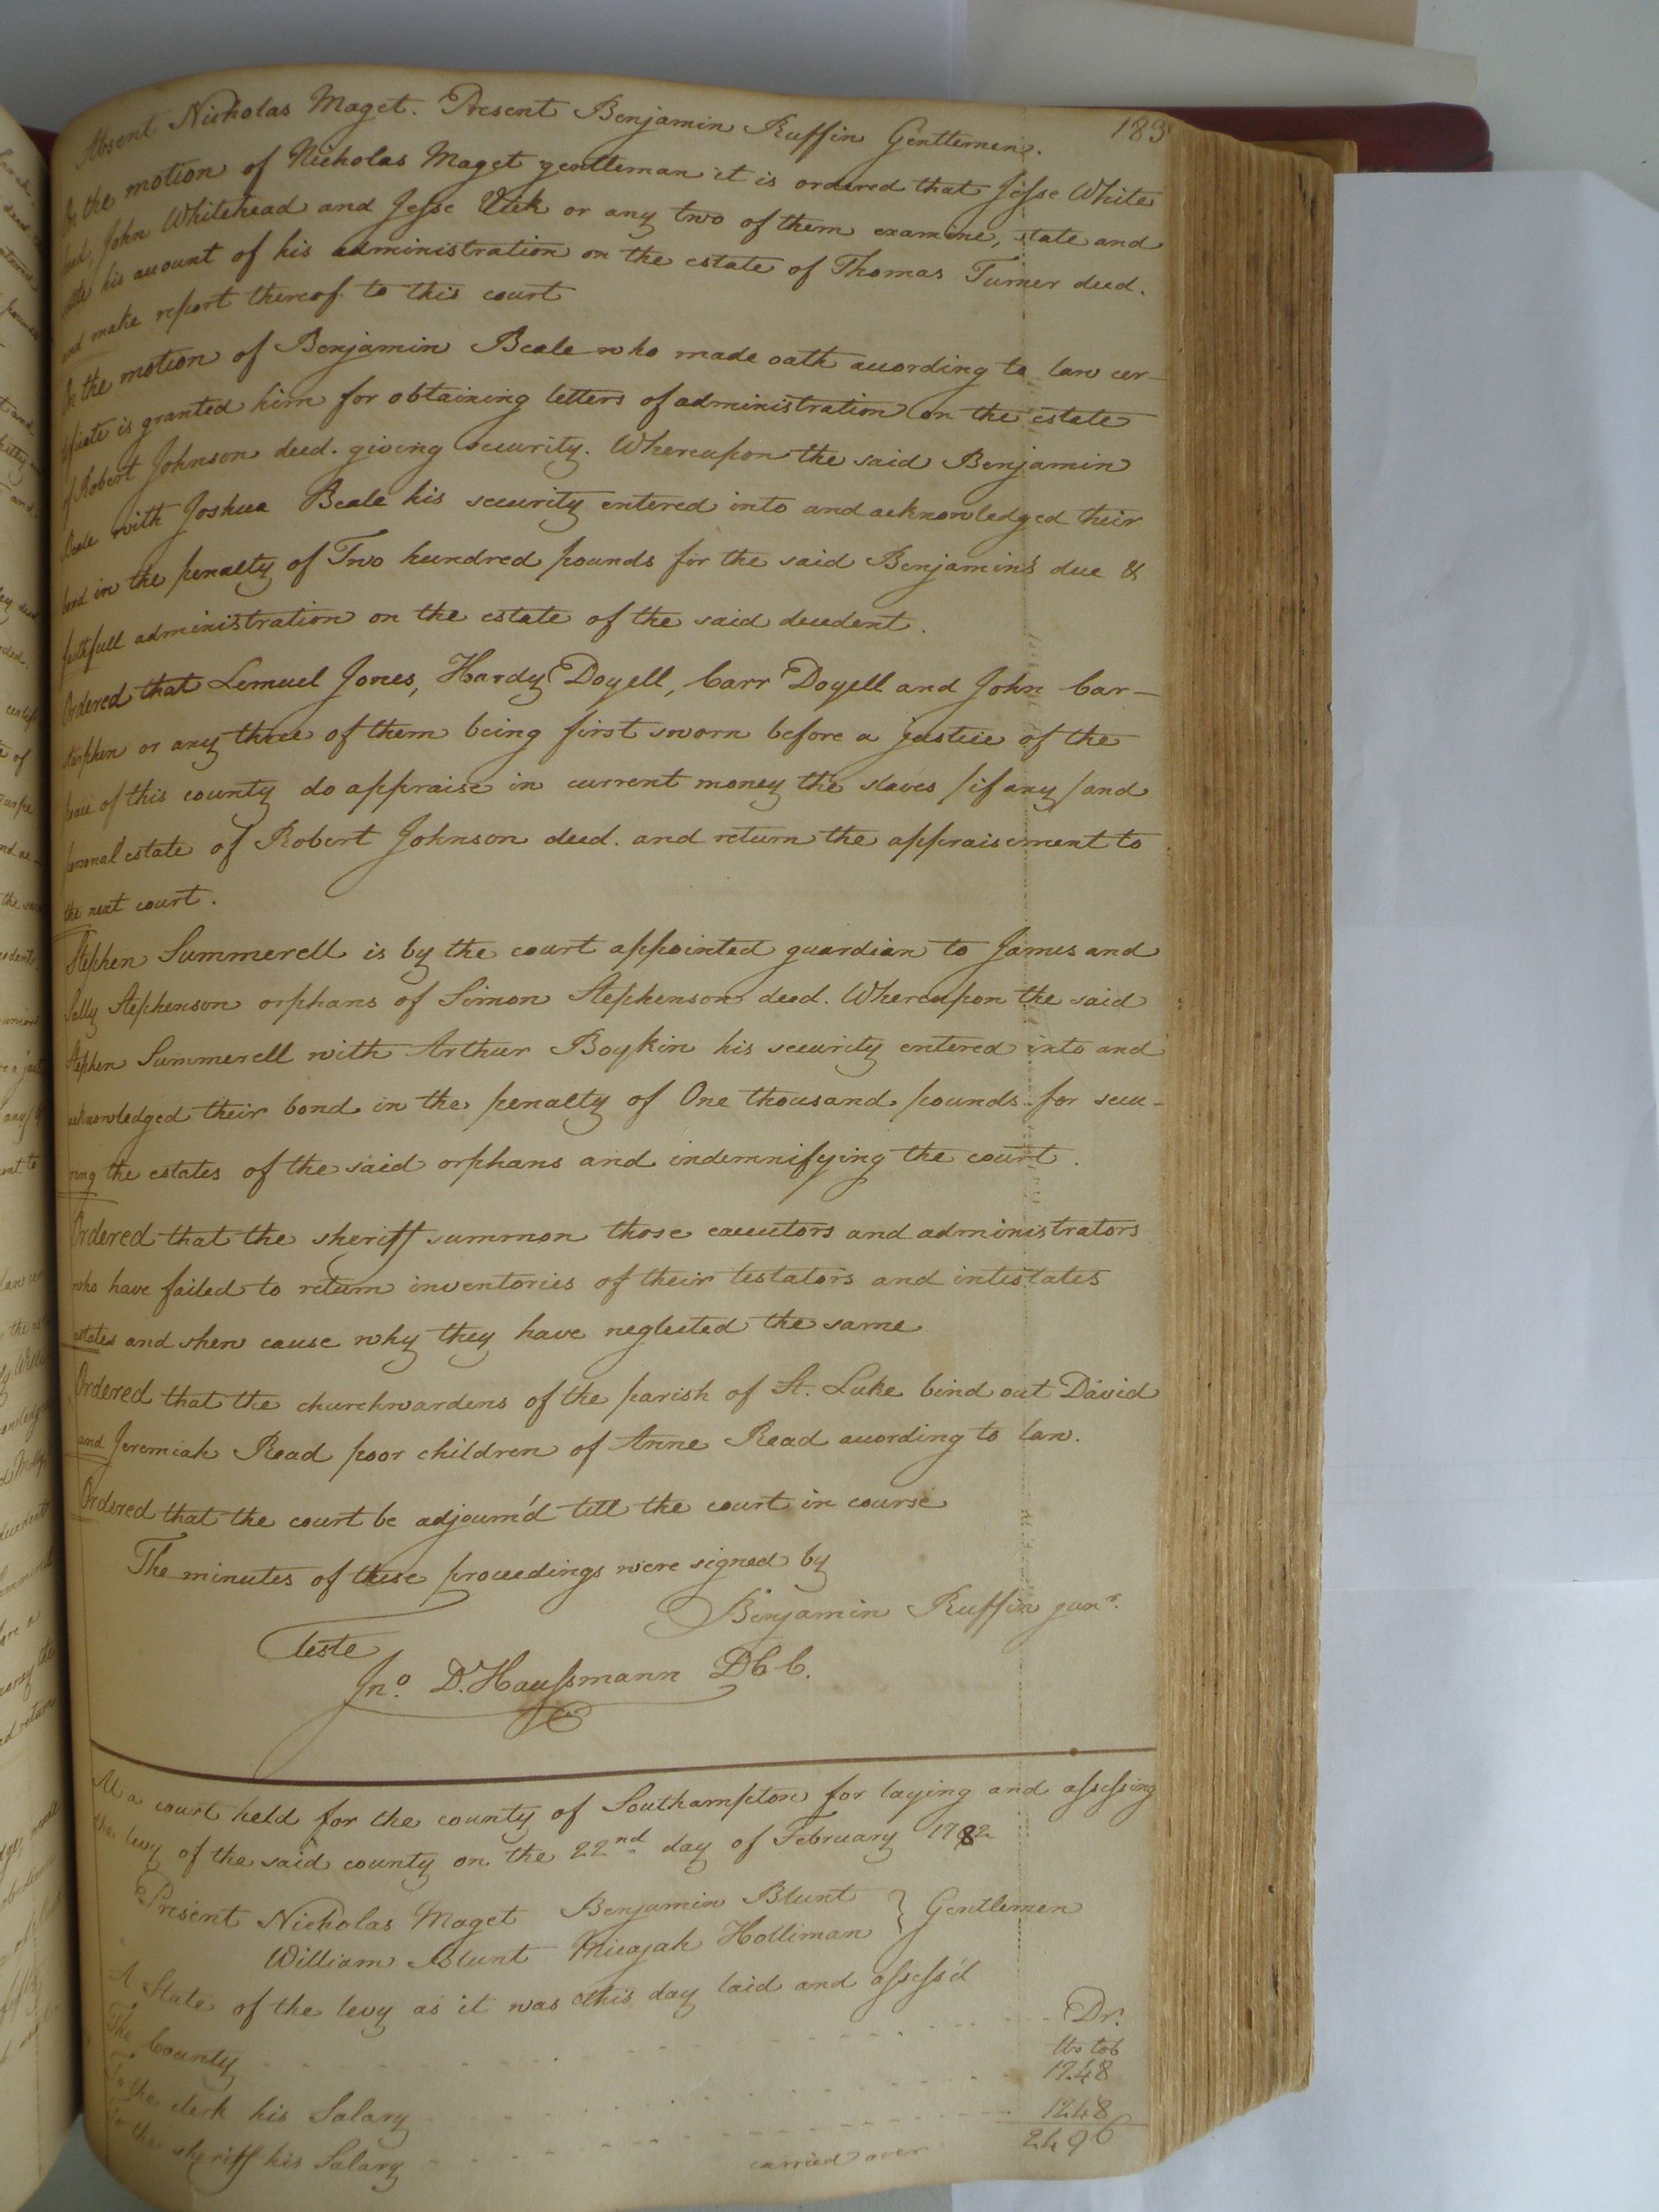 183
Absent Nicholas Maget. Present Benjamin Ruffin Gentlemen.
On the motion of Nicholas Maget gentleman it is ordered that Jesse White
head, John Whitehead and Jesse Vick or any two of them examine, state and
settle his account of his administration on the estate of Thomas Turner decd.
and make report thereof to this court
On the motion of Benjamin Beale who made oath according to law cer-
tificate is granted him for obtaining letters of administration on the estate
of Robert Johnson decd. giving security. Whereupon the said Benjamin
Beale with Joshua Beale his security entered into and acknowledged their
bond in the penalty of Two hundred pounds for the said Benjamin's due &
faithfull administration on the estate of the said decedent.
Ordered that Lemuel Jones, Hardy Doyell, Carr Doyell and John Car-
starphen or any three of them being first sworn before a justice of the
peace of this county do appraise in current money the slaves /if any/ and
personal estate of Robert Johnson decd. and return the appraisement to
the next court.
Stephen Summerell is by the court appointed guardian to James and
Sally Stephenson orphans of Simon Stephenson decd. Whereupon the said
Stephen Summerell with Arthur Boykin his security entered into and
acknowledged their bond in the penalty of One thousand pounds for secu-
ring the estates of the said orphans and indemnifying the court.
Ordered that the sheriff summon those executors and administrators
who have failed to return inventories of their testators and intestates
estates and shew cause why they have neglected the same
Ordered that the churchwardens of the parish of St. Luke bind out David
and Jeremiah Read poor children of Anne Read according to law.
Ordered that the court be adjourn'd till the court in course
The minutes of these proceedings were signed by
Benjamin Ruffin junr.
Teste
Jno. D. Haussmann DCC.
At a court held for the county of Southampton for laying and assessing
the levy of the said county on the 22nd day of February 1782
Present Nicholas Maget Benjamin Blunt } Gentlemen
William Blunt Micajah Holliman
A State of the levy as it was this day laid and assess'd
The County Dr.
lbs tob
To the clerk his Salary 1248
To the sheriff his Salary 1248
carried over 2496